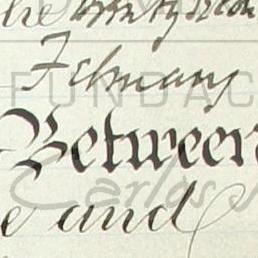 the
February
FUNDAC
Between
Carlos
e and